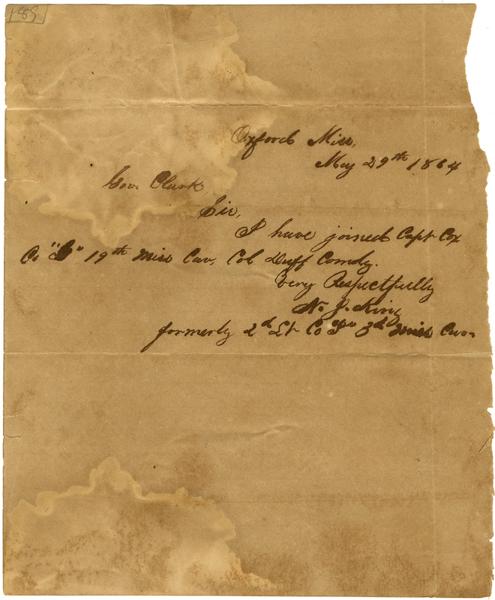 Oxford Miss,
May 29th 1864
Gov. Clark
Sir,
I have joined Capt Cox
Co "G" 19th Miss Cav, Col Duff Comdg.
Very Respectfully
N. J. King
formerly 2d Lt Co 3d Miss Cav.